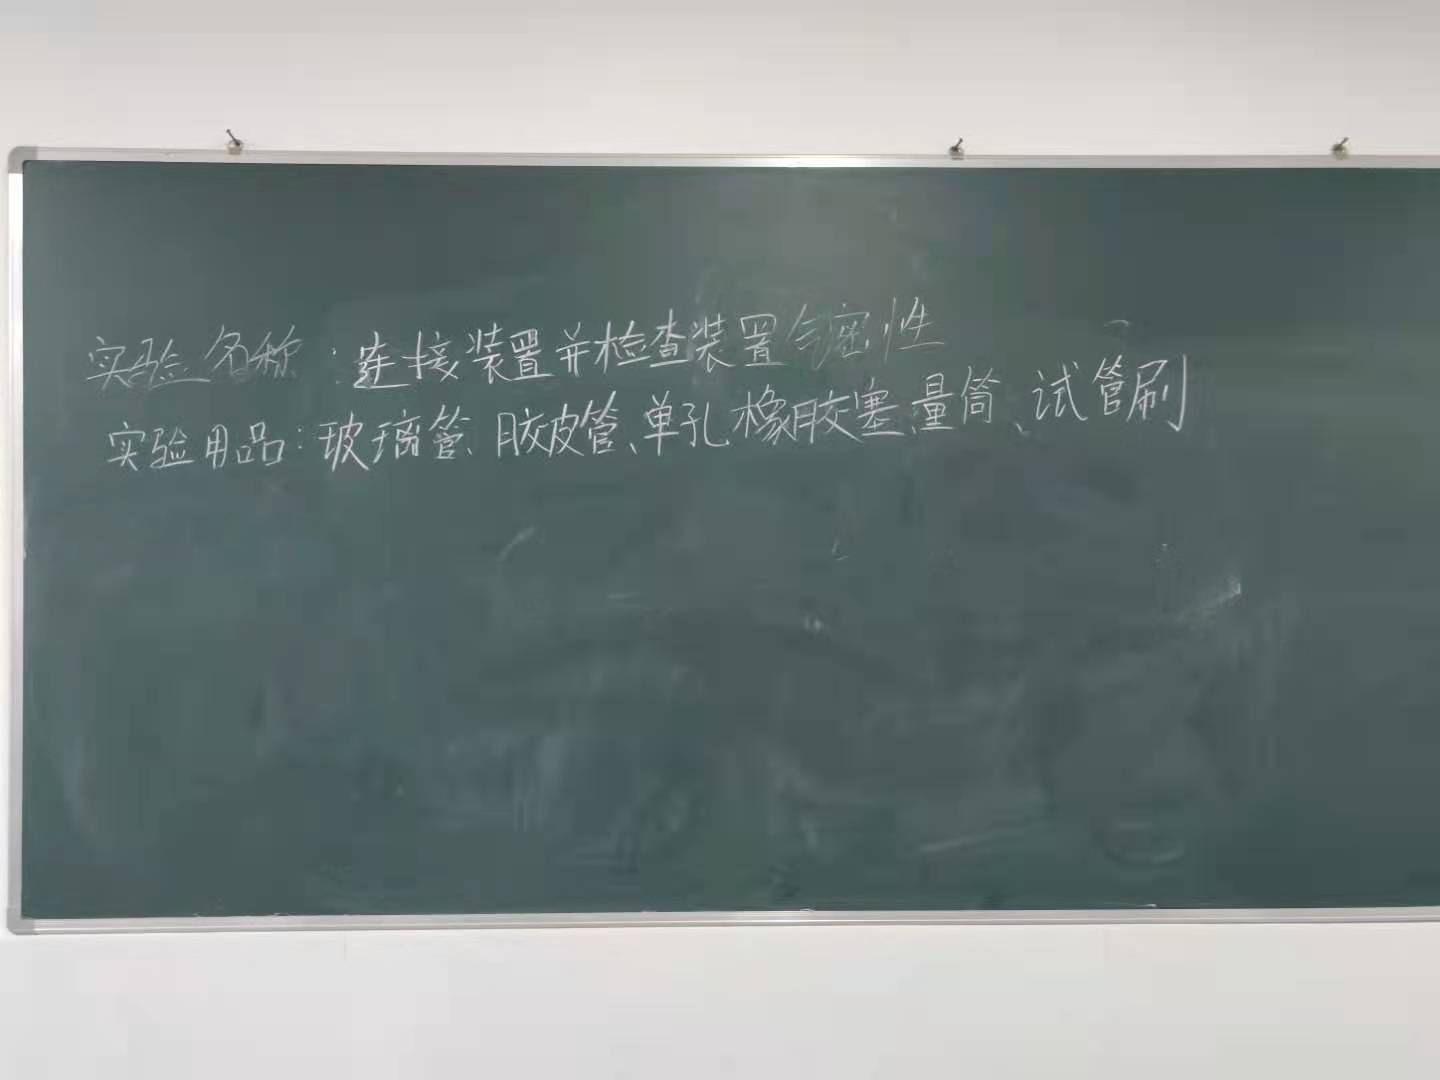 实验名称：连接装置并检查装置气密性
实验用品：玻璃管、胶皮管、单孔橡胶塞、量筒、试管刷